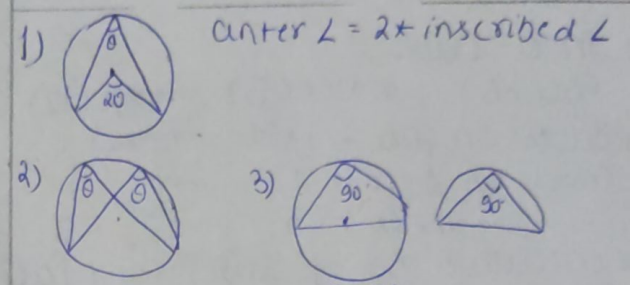 1) θ 2θ anter ∠ = 2* inscribed ∠
2) θ θ 3) 90 90